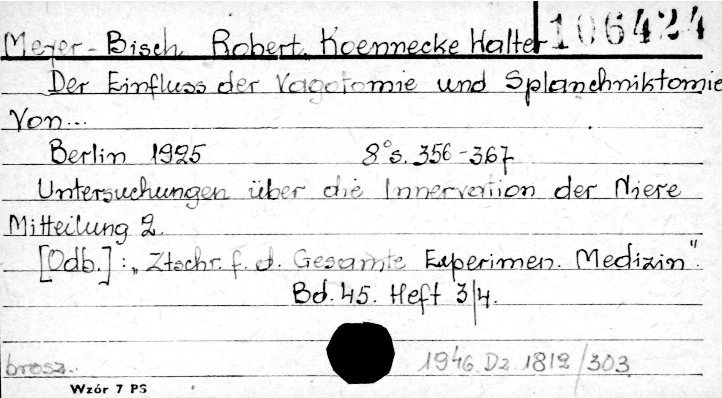 Meyer-Bisch, Robert, Koennecke Halter 106424
Der Einfluss der Vagotomie und Splanchniktomie
Von...
Berlin 1925 8° s. 356-367
Untersuchungen über die Innervation der Niere
Mitteilung 2.
[Odb.]: „Ztschr. f. d. Gesamte Experimen. Medizin".
Bd. 45. Heft 3/4.
brosz. 1946 Dz 1812/303
Wzór 7 PS